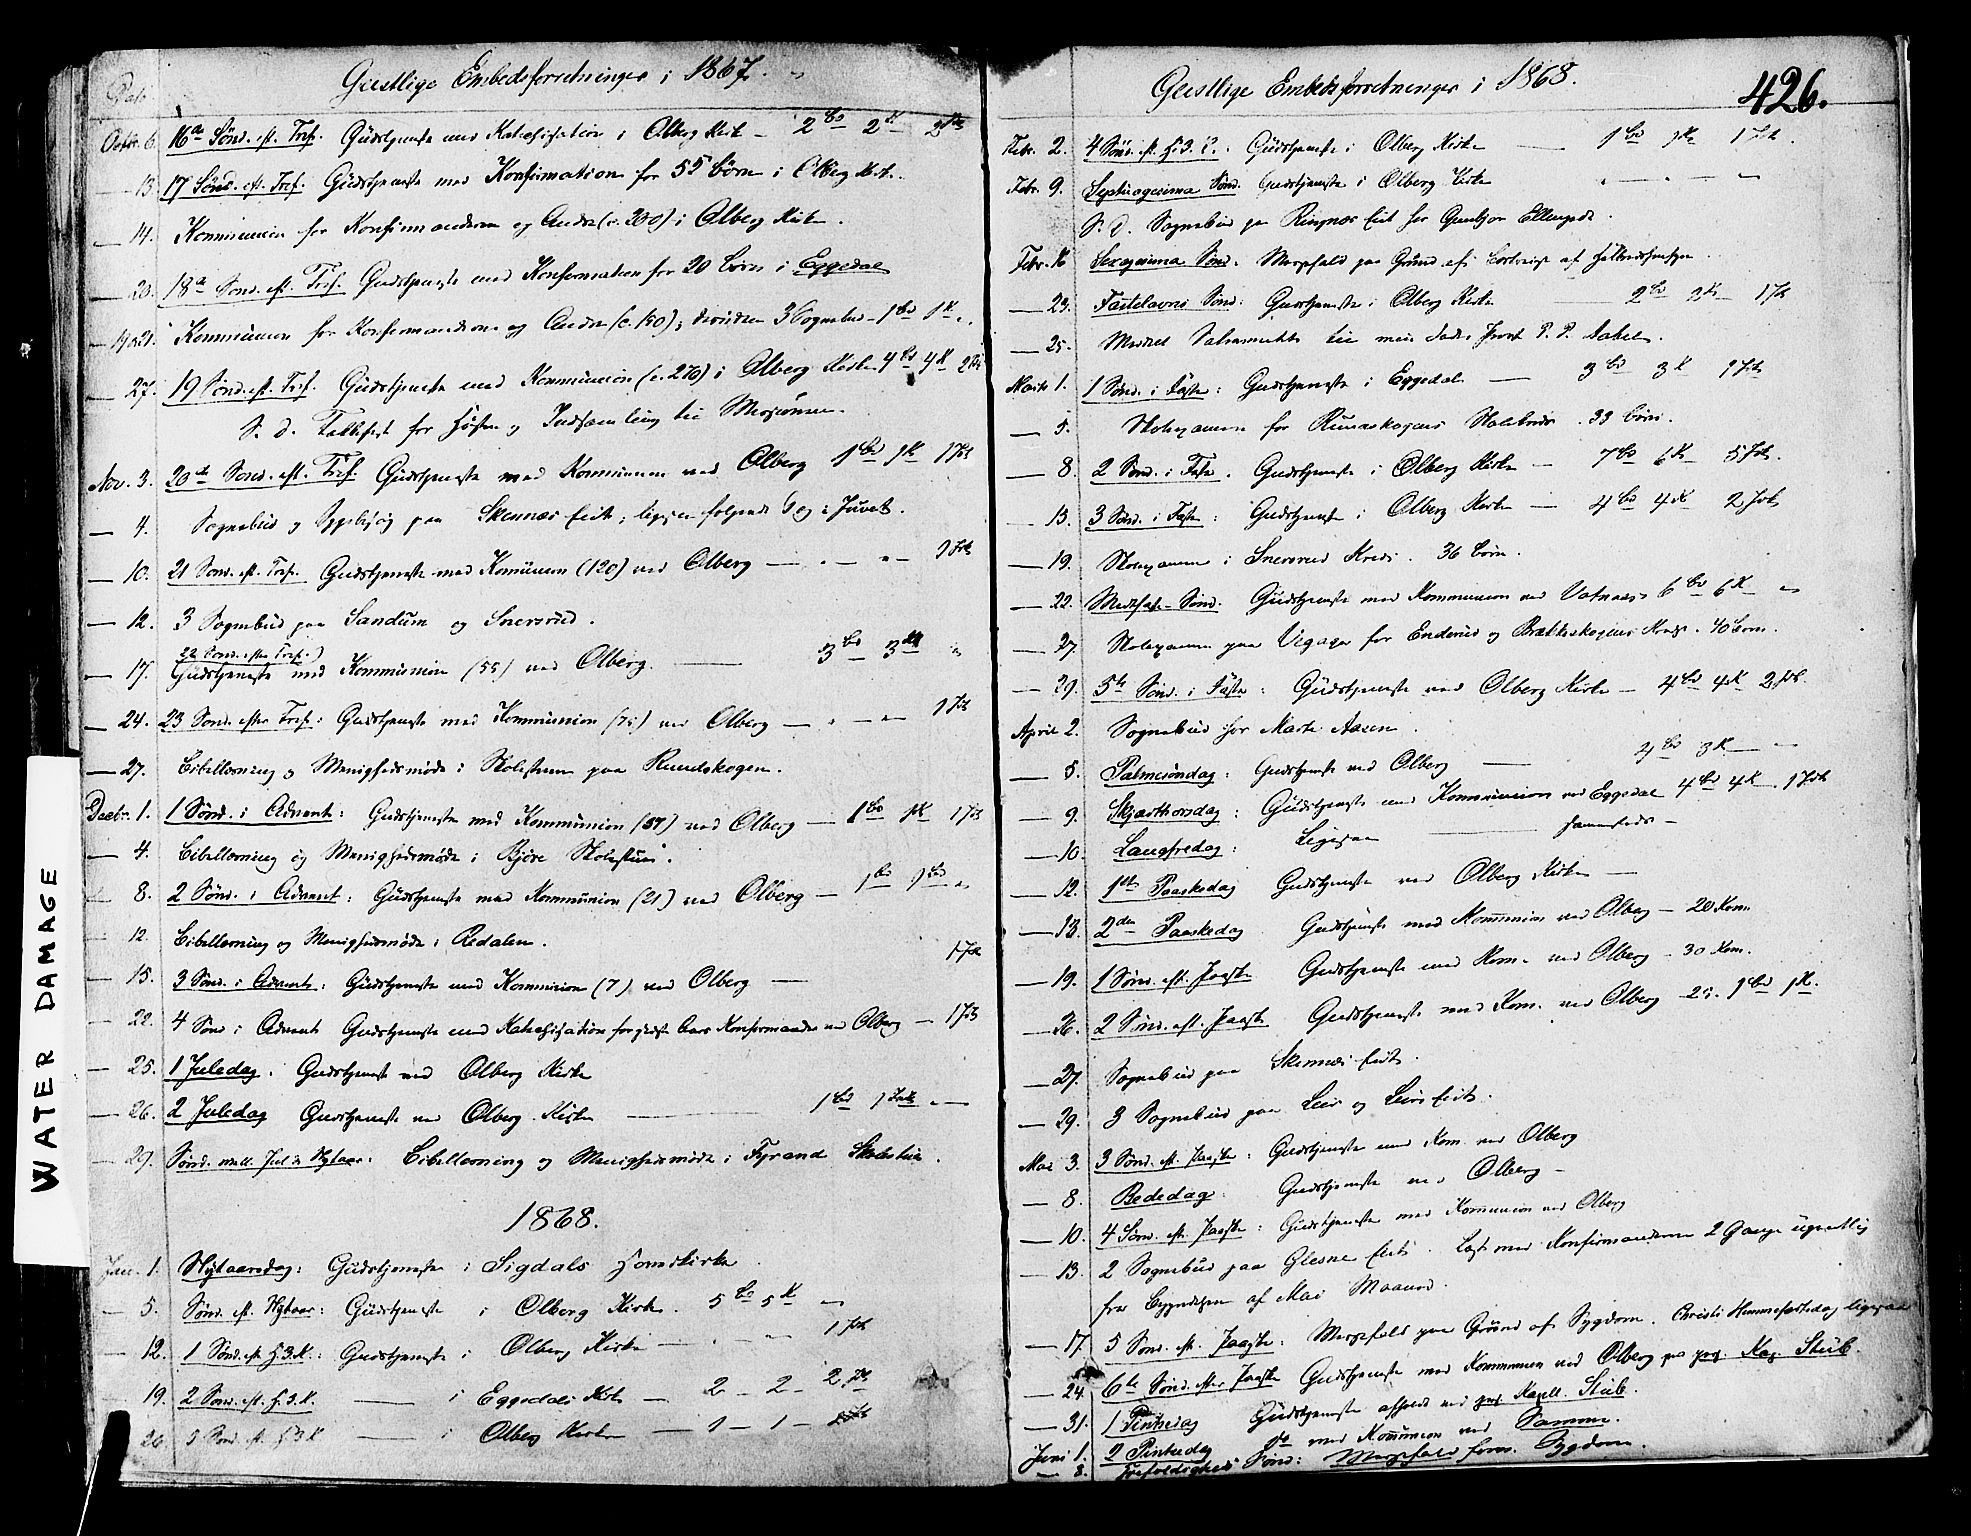 WATER DAMAGE
Dato
Geistlige Embedsforretninger i 1867.
Octbr. 6. 16de Sønd. eft. Tref. Gudstjeneste med Katechisation i Olberg Kirke — 2 Bd 2 K 2 Trl
— 13. 17 Sønd. eft. Tref. Gudstjeneste med Konfirmation for 55 børn i Olberg Kirke.
— 14. Kommunion for Konfirmanderne og Andre (c. 200) i Olberg Kirke.
— 20. 18de Sønd. eft. Tref. Gudstjeneste med Konfirmation for 20 børn i Eggedal
— 19 & 21. Kommunion for Konfirmanderne og Andre (c. 150); desuden 3 Sognebud — 1 Bd 1 K.
— 27. 19 Sønd. eft. Tref. Gudstjeneste med Kommunion (c. 270) i Olberg Kirke 4 Bd 4 K 2 Trl
S. d. Takkefest for Høsten og Indsamling til Missionen.
Nov. 3. 20de Sønd. eft. Tref. Gudstjeneste med Kommunion ved Olberg 1 Bd 1 K 1 Trl
— 4. Sognebud og paa Skennes Eiet; ligesaa følgende Dag i Juvet.
— 10. 21 Sønd. eft. Tref. Gudstjeneste med Komunion (120) ved Olberg — " — " — 1 Trl
— 12. 3 Sognebud paa Sandum og Snersrud.
22 Sønd. efter Tref.)
— 17. Gudstjeneste med Kommunion (55) ved Olberg. — 3 Bd 3 K "
— 24. 23 Sønd. efter Tref: Gudstjeneste med Kommunion (75) ved Olberg — " — " — 1 Trl
— 27. Bibellæsning og Menighedsmøde i Skolestuen paa Rundskogen.
Decbr. 1. 1 Sønd. i Advent: Gudstjeneste med Kommunion (57) ved Olberg — 1 Bd 1 K 1 Trl
— 4. Bibellæsning og Menighedsmøde i Bjøre Skolestue.
— 8. 2 Sønd. i Advent: Gudstjeneste med Kommunion (21) ved Olberg — 1 Bd 1 Bd "
— 12. Bibellæsning og Menighedsmøde i Redalen.
— 15. 3 Sønd. i Advent: Gudstjeneste med Kommunion (7) ved Olberg — 1 Trl
— 22. 4 Sønd i Advent Gudstjeneste med Katechisation for Konfirmander ved Olberg — 1 Trl
— 25. 1 Juledag. Gudstjeneste ved Olberg Kirke
— 26. 2 Juledag Gudstjeneste ved Olberg Kirke — 1 Bd 1 Trl " —
— 29. Sønd. mell. Jul & Nytaar: Bibellæsning og Menighedsmøde i Fyrand Skolestue.
1868.
Jan. 1. Nytaarsdag: Gudstjeneste i Sigdals Hovedkirke.
— 5. Sønd. eft. Nytaar: Gudstjeneste i Olberg Kirke. 5 Bd 5 K "
— 12. 1 Sønd. eft. H.3.K.: Gudstjeneste i Olberg Kirke — " — " 1 Trl
— 19. 2 Sønd. eft. H.3.K. — i Eggedals Kirke — 2 — 2 — 2 Trl
26. 3 Sønd. eft. H.3.K — i Olberg Kirke — 1 — 1 —
Geistlige Embedsforretninger i 1868.
426.
Febr. 2. 4 Sønd. eft. H.3.K.: Gudstjeneste i Olberg Kirke — 1 Bd 1 K 1 Trl.
Febr. 9. Septuagesima Sønd. Gudstjeneste i Olberg Kirke " — " — "
S. D. Sognebud paa Ringnes Eiet hos Gunbjør
Febr. 16 Sexagesima Sønd. Messefald paa Grund af af
— 23. Fastelavns Sønd: Gudstjeneste i Olberg Kirke 2 Bd 2 K 1 Trl
— 25. Meddelt til min Fader Provst P. P. Aabel.
Marts 1. 1 Sønd. i Faste: Gudstjeneste i Eggedal — 3 Bd 3 K 1 Trl
— 5. Skolexamen for Rundskogens Skolekreds. 33 børn.
— 8. 2 Sønd. i Faste. Gudstjeneste i Olberg Kirke — 7 Bd 6 K 5 Trl.
— 15. 3 Sønd. i Faste: Gudstjeneste i Olberg Kirke — 4 Bd 4 K 2 Trl
— 19. Skolexamen i Snersrud Kreds. 36 børn.
— 22. Midfaste-Sønd. Gudstjeneste med Kommunion ved Vatnaas 6 Bd 6 K "
— 27. Skolexamen paa for Enderud og Brækkeskogens Kreds. 40 børn.
— 29. 5te Sønd. i Faste: Gudstjeneste ved Olberg Kirke — 4 Bd 4 K 2 Trl.
April 2. Sognebud hos Marte Aasen.
— 5. Palmesøndag: Gudstjeneste ved Olberg — 4 Bd 3 K — "
— 9. Skjærthorsdag: Gudstjeneste med Kommunion ved Eggedal 4 Bd 4 K 1 Trl
— 10. Langfredag: Ligesaa — sammesteds —
— 12. 1ste Paaskedag Gudstjeneste ved Olberg Kirke —
— 13. 2den Paaskedag Gudstjeneste med Kommunion ved Olberg — 20 Kom.
— 19. 1 Sønd. eft. Paaske Gudstjeneste med Kom. ved Olberg — 30 Kom.
— 26. 2 Sønd. eft. Paaske Gudstjeneste med Kom. ved Olberg — 25. 1 Bd 1 K.
— 27. Sognebud paa Skennes Eiet.
— 29. 3 Sognebud paa Leir og Leirs Eiet.
Mai 3. 3 Sønd. eft. Paaske: Gudstjeneste med Kom. ved Olberg
— 8. Bededag: Gudstjeneste ved Olberg —
— 10. 4 Sønd. eft. Paaske: Gudstjeneste med Kommunion ved Olberg
— 13. 2 Sognebud paa Glesne Eiet. Læst med Konfirmanderne 2 Gange ugentlig
fra Begyndelsen af Mai Maaned.
— 17. 5 Sønd. eft. Paaske: Messefald paa Grund af Sygdom. Christi Himmelfartsdag ligesaa
— 24. 6te Sønd. efter Paaske Gudstjeneste med Kommunion ved Olberg pers. Kap. Stub
— 31. 1 Pintsedag Gudstjeneste afholdt ved pers. Kapell. Stub.
Juni 1. 2 Pintsedag do med Kommunion ved Samme.
— 8. Trefoldigheds Sønd: Messefald form. Sygdom.